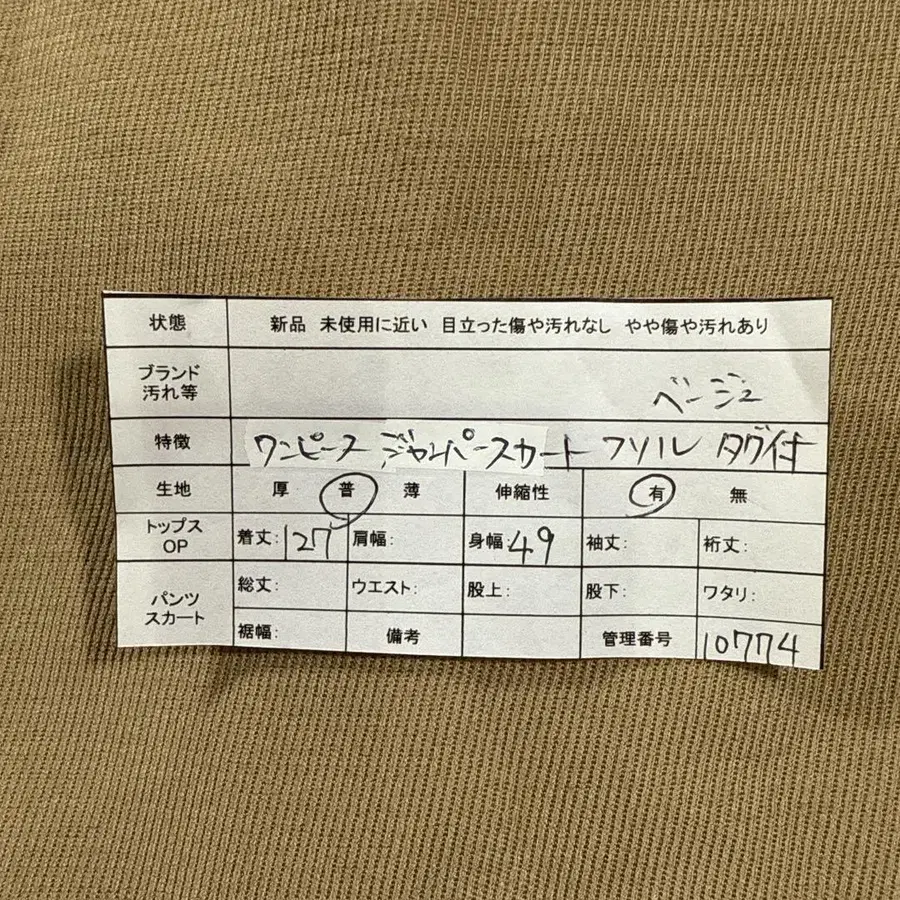 状態 新品 未使用に近い 目立った傷や汚れなし やや傷や汚れあり
ブランド
汚れ等 ベージュ
特徴 ワンピース ジャンパースカート フソル タグ付
生地 厚 普 薄 伸縮性 有 無
トップス
OP 着丈:127 肩幅: 身幅:49 袖丈: 裄丈:
パンツ
スカート 総丈: ウエスト: 股上: 股下: ワタリ:
裾幅: 備考 管理番号 10774